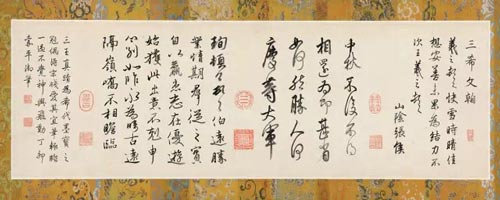 三希文翰
羲之頓首快雪時晴佳
想安善未果為結力不
次王羲之頓首
山陰張侯
中秋不復不得
相還為即甚省
如何然勝人何
慶等大軍
珣頓首頓首伯遠勝
業情期群從之寶
自以羸患志在優遊
始獲此出意不剋申
分別如昨永為疇古遠
隔嶺嶠不相瞻臨
三王真蹟為希代墨寶之
一過不覺神與 丁卯
嘉平御筆